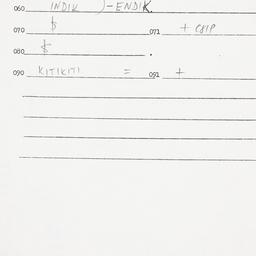 060 INDIK )-ENDIK.
070 $ 071 + CHIP
080 $ .
090 KITIKITI = 091 +